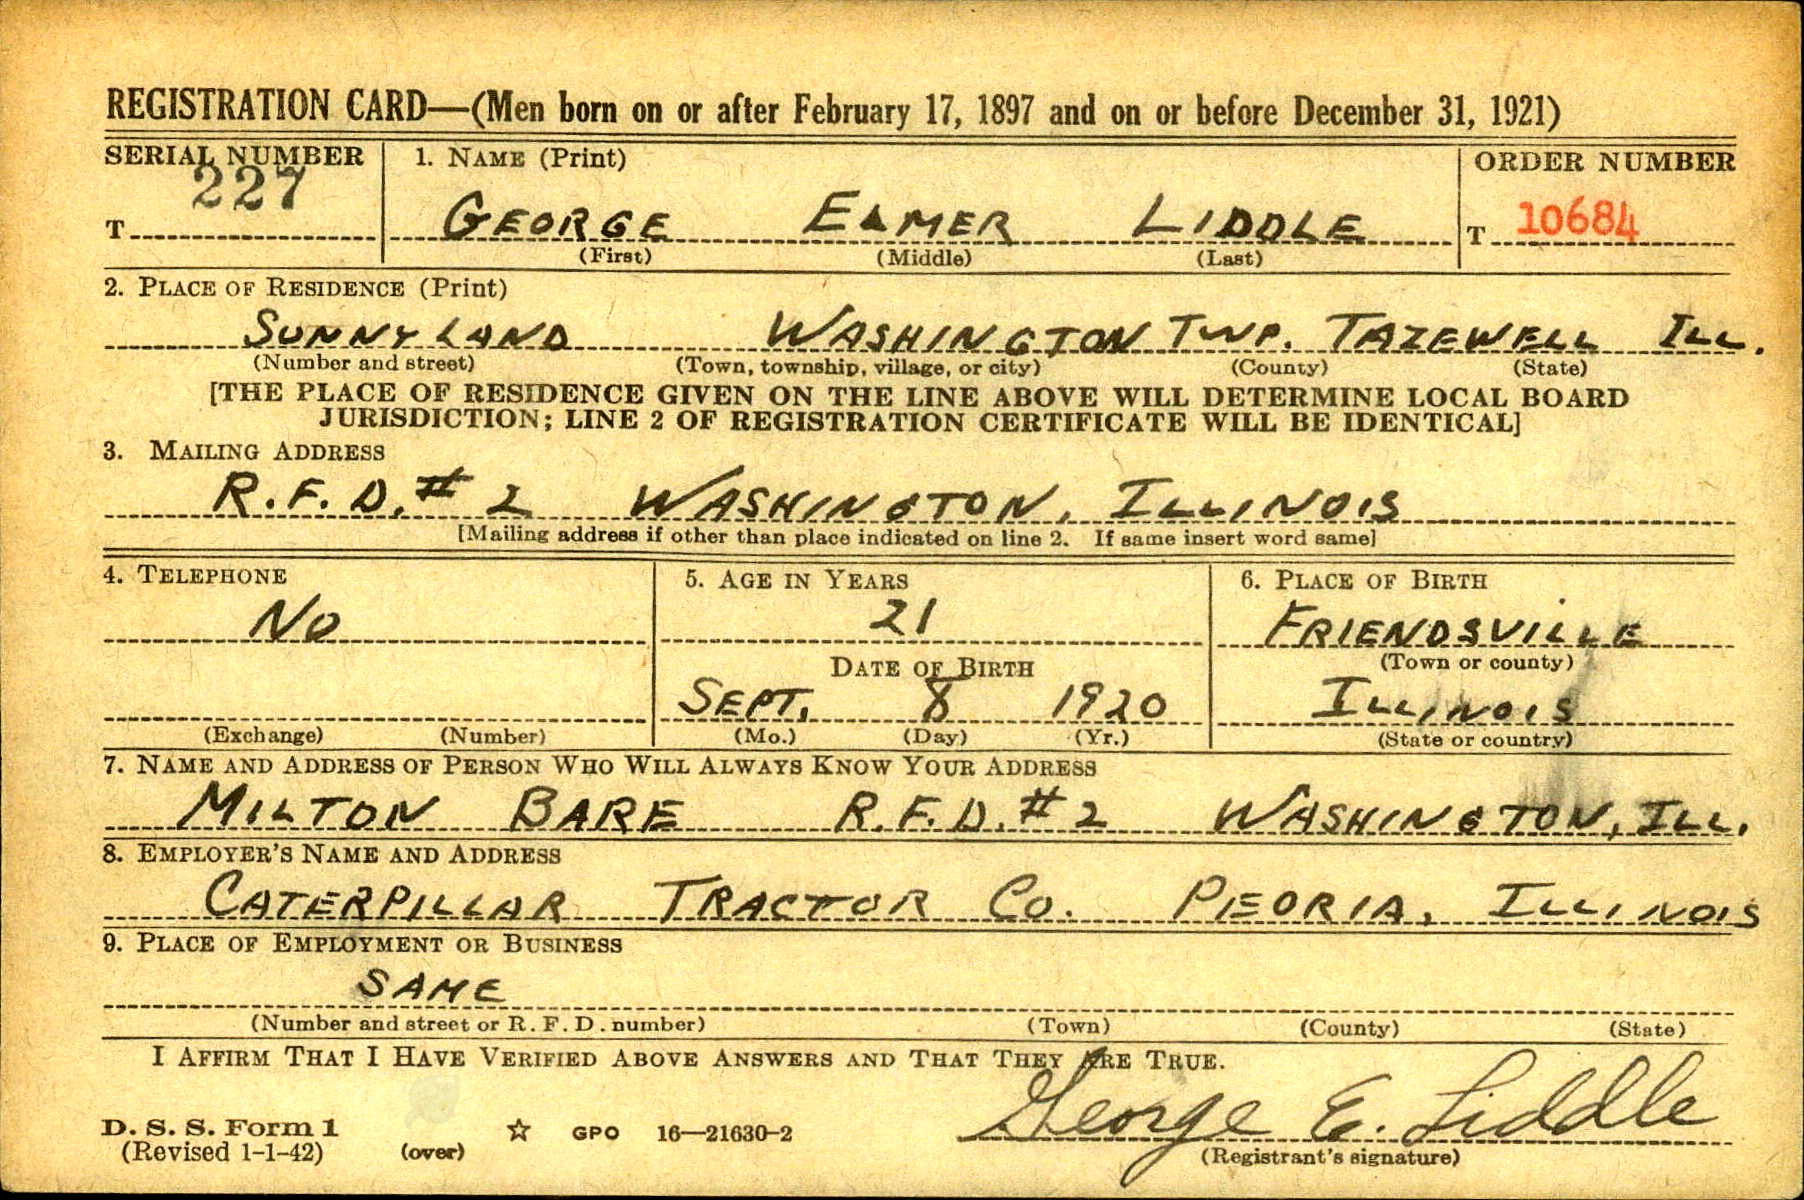 REGISTRATION CARD—(Men born on or after February 17, 1897 and on or before December 31, 1921)
SERIAL NUMBER 1. NAME (Print) ORDER NUMBER
227
T GEORGE ELMER LIDDLE T 10684
(First) (Middle) (Last)
2. PLACE OF RESIDENCE (Print)
SUNNYLAND WASHINGTON TWP. TAZEWELL ILL.
(Number and street) (Town, township, village, or city) (County) (State)
[THE PLACE OF RESIDENCE GIVEN ON THE LINE ABOVE WILL DETERMINE LOCAL BOARD
JURISDICTION; LINE 2 OF REGISTRATION CERTIFICATE WILL BE IDENTICAL]
3. MAILING ADDRESS
R.F.D. #2 WASHINGTON, ILLINOIS
[Mailing address if other than place indicated on line 2. If same insert word same]
4. TELEPHONE 5. AGE IN YEARS 6. PLACE OF BIRTH
NO 21 FRIENDSVILLE
DATE OF BIRTH (Town or county)
SEPT. 8 1920 ILLINOIS
(Exchange) (Number) (Mo.) (Day) (Yr.) (State or country)
7. NAME AND ADDRESS OF PERSON WHO WILL ALWAYS KNOW YOUR ADDRESS
MILTON BARE R.F.D. #2 WASHINGTON, ILL.
8. EMPLOYER'S NAME AND ADDRESS
CATERPILLAR TRACTOR CO. PEORIA, ILLINOIS
9. PLACE OF EMPLOYMENT OR BUSINESS
SAME
(Number and street or R. F. D. number) (Town) (County) (State)
I AFFIRM THAT I HAVE VERIFIED ABOVE ANSWERS AND THAT THEY ARE TRUE.
George E. Liddle
D. S. S. Form 1 ☆ GPO 16—21630-2
(Revised 1-1-42) (over) (Registrant's signature)